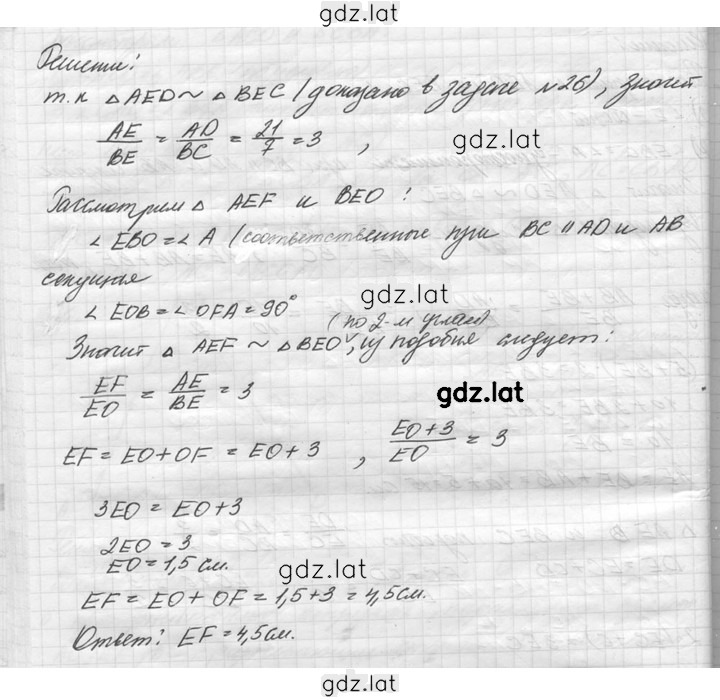 gdz.lat
Решение:
т.к △AED ~ △BEC (доказано в задаче №26), значит
AE/BE = AD/BC = 21/7 = 3 ,
gdz.lat
Рассмотрим △ AEF и BEO :
∠EBO = ∠A (соответственные при BC ∥ AD и AB
секущая
gdz.lat
∠EOB = ∠OFA = 90°
(по 2-м углам)
Значит △ AEF ~ △BEO, из подобия следует:
EF/EO = AE/BE = 3
gdz.lat
EF = EO + OF = EO + 3 , (EO+3)/EO = 3
3EO = EO + 3
2EO = 3
EO = 1,5 см.
gdz.lat
EF = EO + OF = 1,5 + 3 = 4,5 см.
Ответ: EF = 4,5 см.
gdz.lat